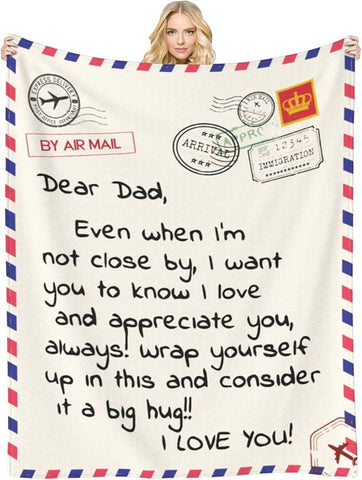 EXPRESS DELIVERY
BY AIR MAIL
ARRIVAL
12345
IMMIGRATION
Dear Dad,
Even when I'm
not close by, I want
you to know I love
and appreciate you,
always! wrap yourself
up in this and consider
it a big hug!!
I LOVE YOU!